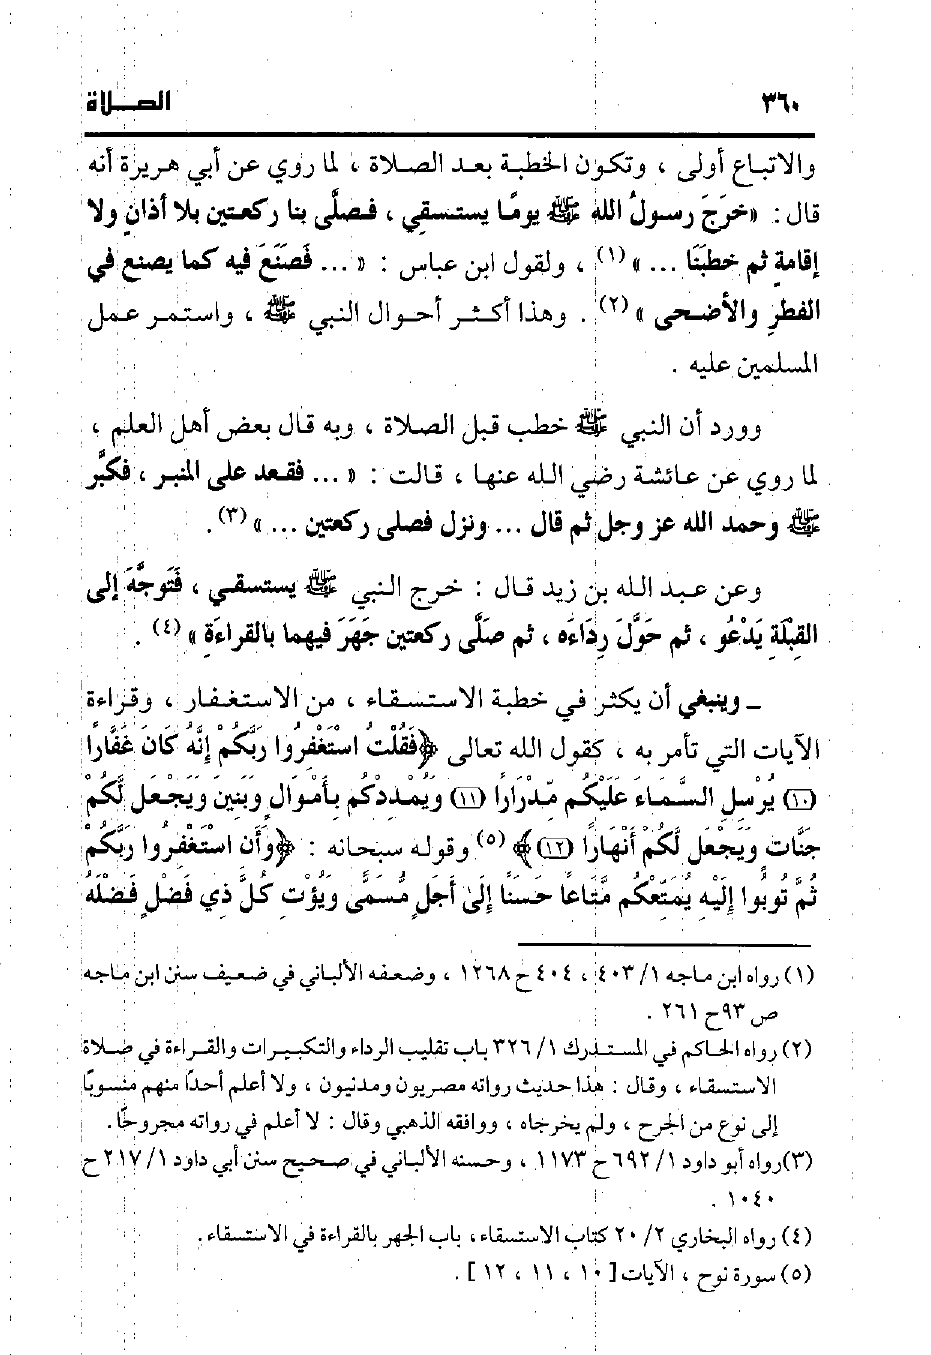 ٣٦٠ الصـلاة
والاتباع أولى ، وتكون الخطبة بعد الصلاة ، لما روي عن أبي هريزة أنه
قال : «خرَجَ رسولُ الله ﷺ يومًا يستسقي ، فصلَّى بنا ركعتين بلا أذانٍ ولا
إقامةٍ ثم خطبَنَا ... » (١) ، ولقول ابن عباس : « ... فَصَنَعَ فيه كما يصنع في
الفطرِ والأضحى » (٢) . وهذا أكثر أحوال النبي ﷺ ، واستمر عمل
المسلمين عليه .
وورد أن النبي ﷺ خطب قبل الصلاة ، وبه قال بعض أهل العلم ،
لما روي عن عائشة رضي الله عنها ، قالت : « ... فقعد على المنبر ، فكبَّر
ﷺ وحمد الله عز وجل ثم قال ... ونزل فصلى ركعتين ... » (٣) .
وعن عبد الله بن زيد قال : خرج النبي ﷺ يستسقي ، فَتَوجَّهَ إلى
القِبْلَةِ يَدْعُو ، ثم حَوَّلَ رِدَاءَه ، ثم صَلَّى ركعتين جَهَرَ فيهما بالقراءَةِ » (٤) .
ـ وينبغي أن يكثر في خطبة الاستسقاء ، من الاستغفار ، وقراءة
الآيات التي تأمر به ، كقول الله تعالى ﴿فَقُلْتُ اسْتَغْفِرُوا رَبَّكُمْ إِنَّهُ كَانَ غَفَّارًا
(١٠) يُرْسِلِ السَّمَاءَ عَلَيْكُم مِّدْرَارًا (١١) وَيُمْدِدْكُم بِأَمْوَالٍ وَبَنِينَ وَيَجْعَل لَّكُمْ
جَنَّاتٍ وَيَجْعَل لَّكُمْ أَنْهَارًا (١٢)﴾ (٥) وقوله سبحانه : ﴿وَأَنِ اسْتَغْفِرُوا رَبَّكُمْ
ثُمَّ تُوبُوا إِلَيْهِ يُمَتِّعْكُم مَّتَاعًا حَسَنًا إِلَىٰ أَجَلٍ مُّسَمًّى وَيُؤْتِ كُلَّ ذِي فَضْلٍ فَضْلَهُ
(١) رواه ابن ماجه ١/ ٤٠٣ ، ٤٠٤ ح ١٢٦٨ ، وضعفه الألباني في ضعيف سنن ابن ماجه
ص ٩٣ ح ٢٦١ .
(٢) رواه الحاكم في المستدرك ١/ ٣٢٦ باب تقليب الرداء والتكبيرات والقراءة في صلاة
الاستسقاء ، وقال : هذا حديث رواته مصريون ومدنيون ، ولا أعلم أحدًا منهم منسوبًا
إلى نوع من الجرح ، ولم يخرجاه ، ووافقه الذهبي وقال : لا أعلم في رواته مجروحًا .
(٣) رواه أبو داود ١/ ٦٩٢ ح ١١٧٣ ، وحسنه الألباني في صحيح سنن أبي داود ١/ ٢١٧ ح
١٠٤٠ .
(٤) رواه البخاري ٢/ ٢٠ كتاب الاستسقاء ، باب الجهر بالقراءة في الاستسقاء .
(٥) سورة نوح ، الآيات [ ١٠ ، ١١ ، ١٢ ] .